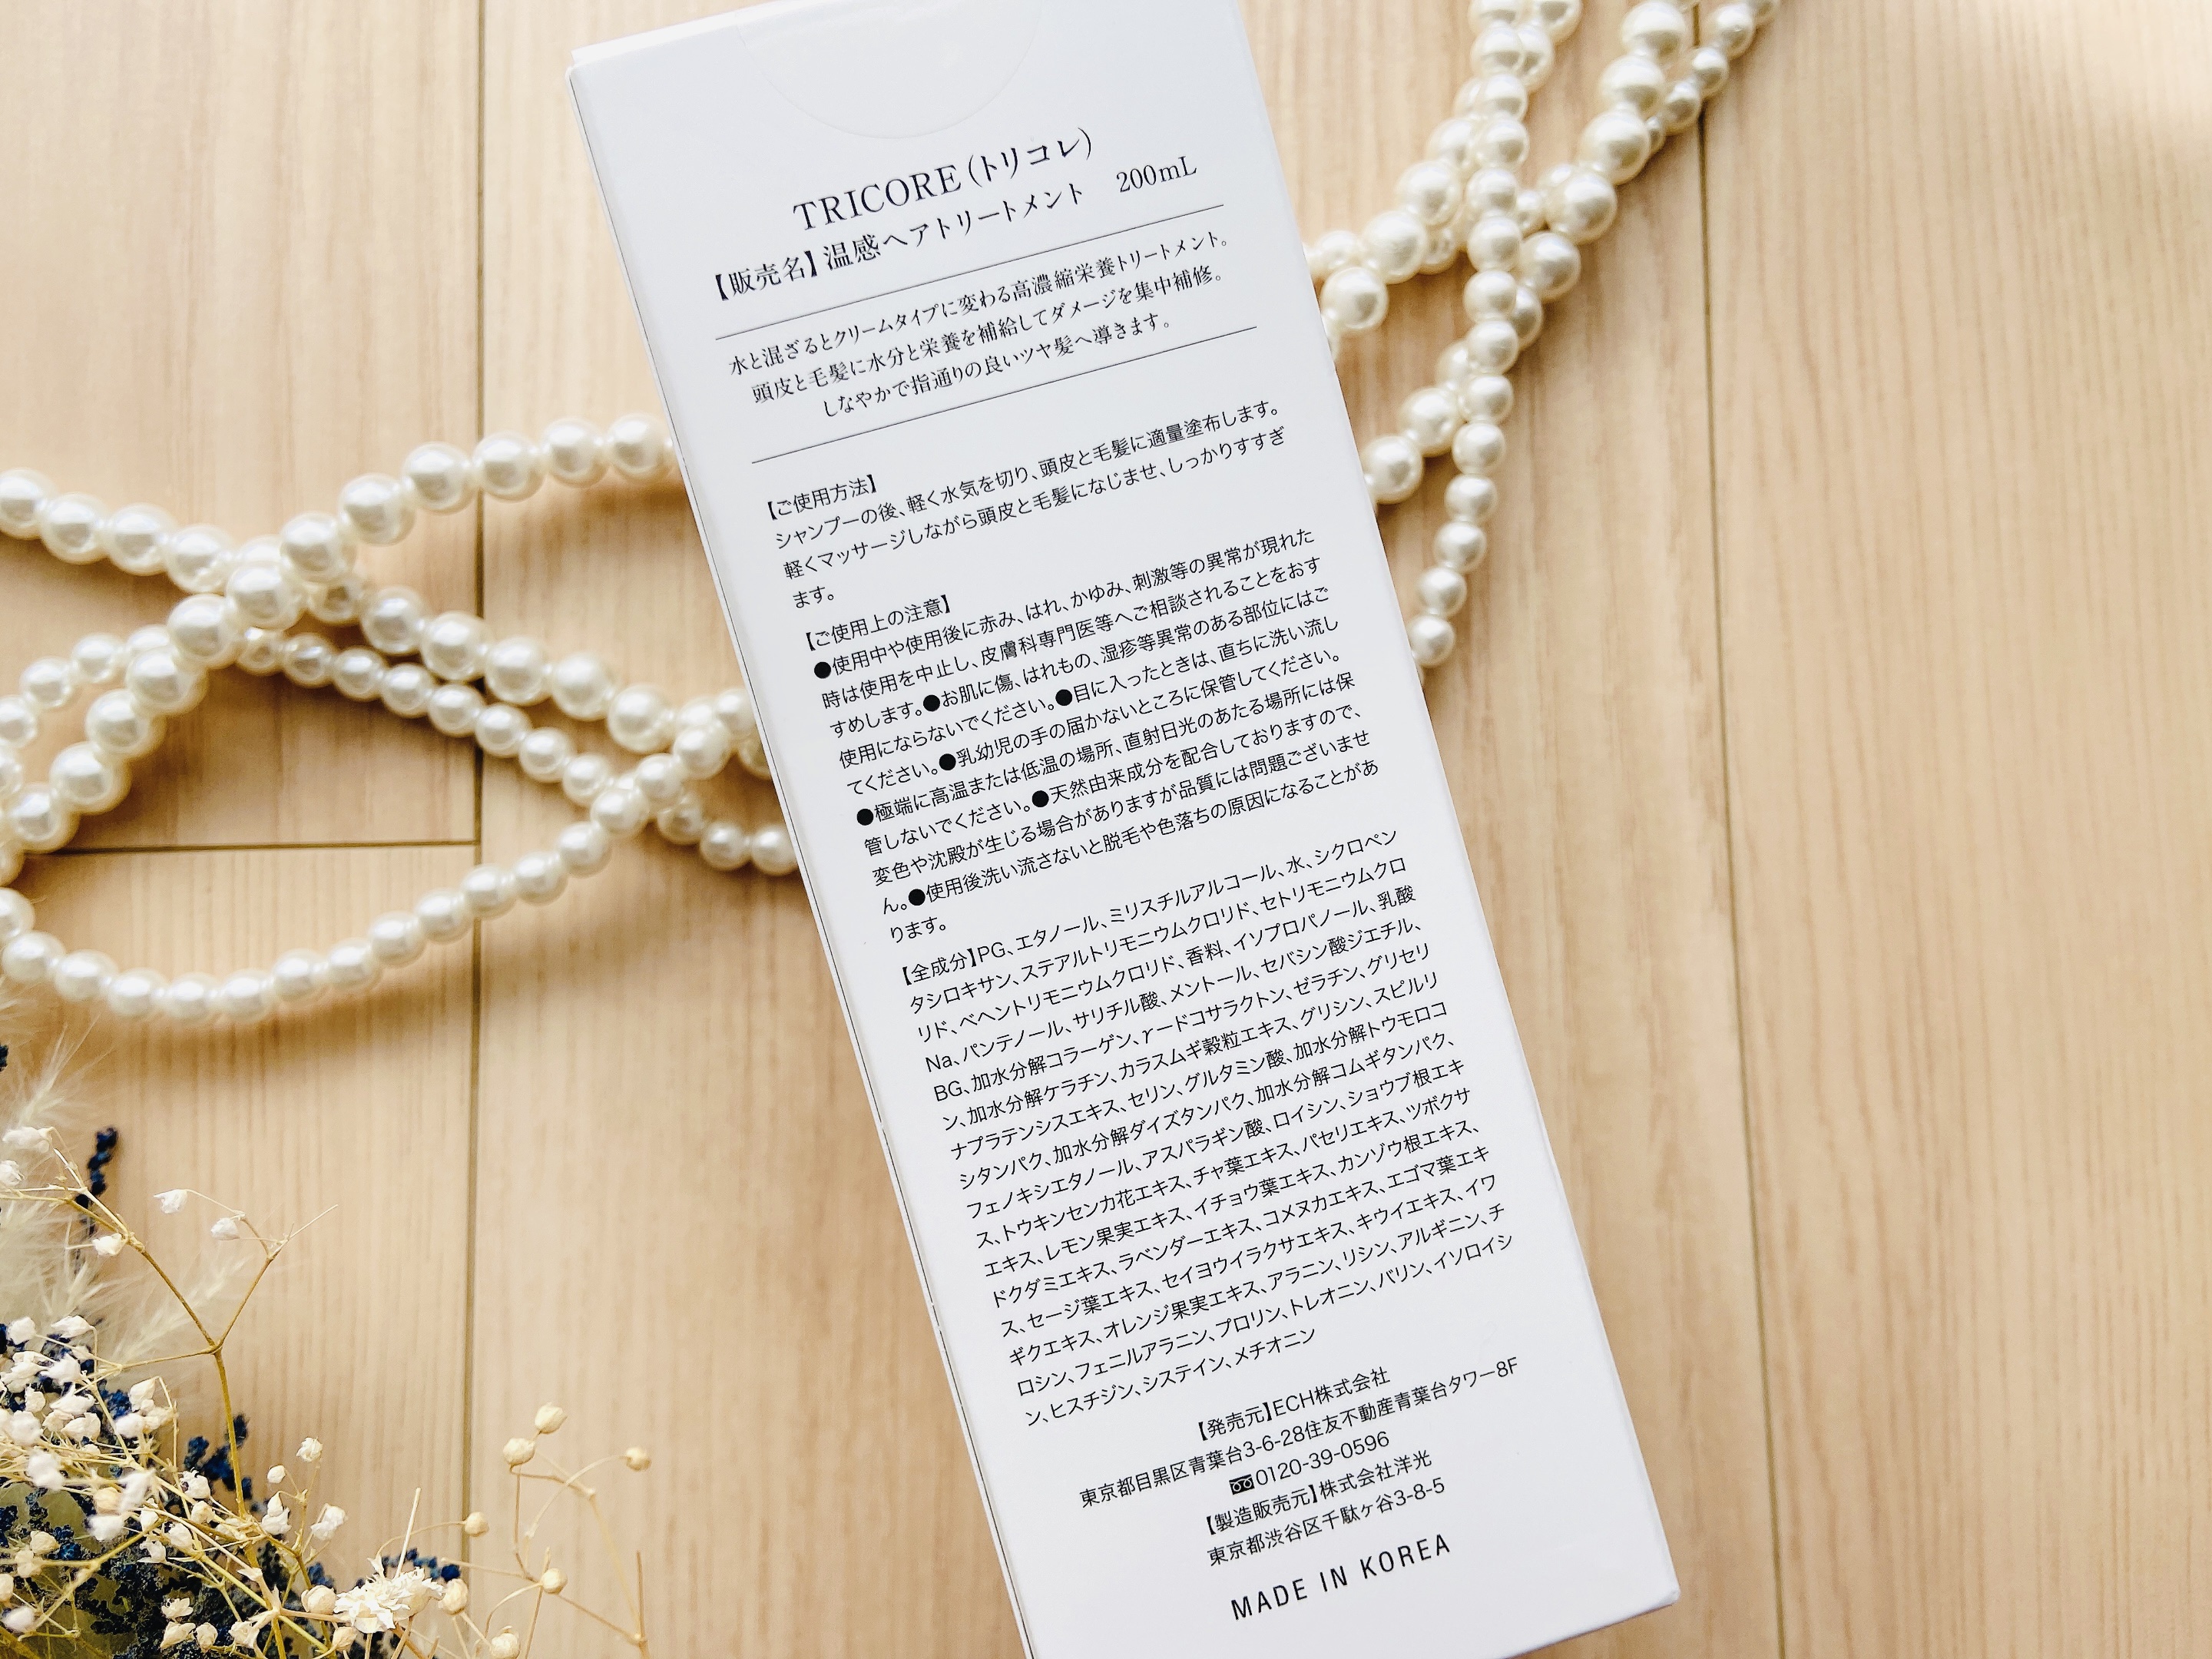 TRICORE(トリコレ)
【販売名】温感ヘアトリートメント 200mL
水と混ざるとクリームタイプに変わる高濃縮栄養トリートメント。
頭皮と毛髪に水分と栄養を補給してダメージを集中補修。
しなやかで指通りの良いツヤ髪へ導きます。
【ご使用方法】
シャンプーの後、軽く水気を切り、頭皮と毛髪に適量塗布します。
軽くマッサージしながら頭皮と毛髪になじませ、しっかりすすぎ
ます。
【ご使用上の注意】
●使用中や使用後に赤み、はれ、かゆみ、刺激等の異常が現れた
時は使用を中止し、皮膚科専門医等へご相談されることをおす
すめします。●お肌に傷、はれもの、湿疹等異常のある部位にはご
使用にならないでください。●目に入ったときは、直ちに洗い流し
てください。●乳幼児の手の届かないところに保管してください。
●極端に高温または低温の場所、直射日光のあたる場所には保
管しないでください。●天然由来成分を配合しておりますので、
変色や沈殿が生じる場合がありますが品質には問題ございませ
ん。●使用後洗い流さないと脱毛や色落ちの原因になることがあ
ります。
【全成分】PG、エタノール、ミリスチルアルコール、水、シクロペン
タシロキサン、ステアルトリモニウムクロリド、セトリモニウムクロ
リド、ベヘントリモニウムクロリド、香料、イソプロパノール、乳酸
Na、パンテノール、サリチル酸、メントール、セバシン酸ジエチル、
BG、加水分解コラーゲン、γードコサラクトン、ゼラチン、グリセリ
ン、加水分解ケラチン、カラスムギ穀粒エキス、グリシン、スピルリ
ナプラテンシスエキス、セリン、グルタミン酸、加水分解トウモロコ
シタンパク、加水分解ダイズタンパク、加水分解コムギタンパク、
フェノキシエタノール、アスパラギン酸、ロイシン、ショウブ根エキ
ス、トウキンセンカ花エキス、チャ葉エキス、パセリエキス、ツボクサ
エキス、レモン果実エキス、イチョウ葉エキス、カンゾウ根エキス、
ドクダミエキス、ラベンダーエキス、コメヌカエキス、エゴマ葉エキ
ス、セージ葉エキス、セイヨウイラクサエキス、キウイエキス、イワ
ギクエキス、オレンジ果実エキス、アラニン、リシン、アルギニン、チ
ロシン、フェニルアラニン、プロリン、トレオニン、バリン、イソロイシ
ン、ヒスチジン、システイン、メチオニン
【発売元】ECH株式会社
東京都目黒区青葉台3-6-28住友不動産青葉台タワー8F
0120-39-0596
【製造販売元】株式会社洋光
東京都渋谷区千駄ヶ谷3-8-5
MADE IN KOREA